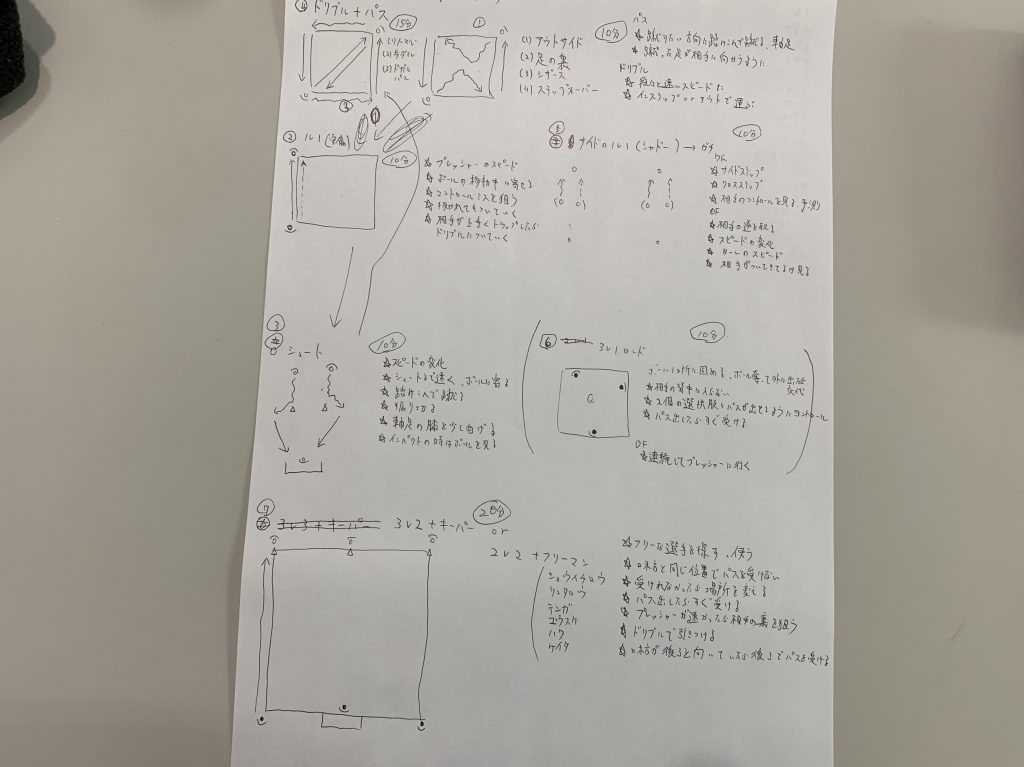 ④ ドリブル+パス 15分
①
(2) 片ダイレ
(3) ドリブル
パス
②
(1) アウトサイド
(2) 足の裏
(3) シザース
(4) ステップオーバー
10分
パス
☆ 蹴りたい方向に踏みこんで蹴る、軸足
ドリブル
☆ 段々と速いスピードに
☆ インステップ or アウトで運ぶ
② 1v1 (守備)
10分
☆ プレッシャーのスピード
☆ ボールの移動中に寄せる
☆ コントロールミスを狙う
☆ 抜かれてもついていく
☆ 相手が上手くトラップしたら
ドリブルについていく
5
サイドの1v1 (シャドー) → ガチ
10分
☆ サイドステップ
☆ クロスステップ
☆ 相手のコントロールを見る、予測
OF
☆ 相手の逆を取る
☆ スピードの変化
☆ ターンのスピード
☆ 相手がついてきてるか見る
3
シュート
10分
☆ スピードの変化
☆ シュートまで速く、ボールに寄る
☆ 踏みこんで蹴る
☆ 振り切る
☆ 軸足の膝を少し曲げる
☆ インパクトの時はボールを見る
6 3v1 ロンド
10分
ボール1ヶ所に固める、ボール奪って外に出たら
交代
☆ 相手の背中に入らない
☆ 2個の選択肢にパスが出せるようにコントロール
☆ パス出したらすぐ受ける
DF
☆ 連続してプレッシャーに行く
7
3v3+キーパー 3v2+キーパー 20分
or
2v2+フリーマン
ショウイチロウ
リンタロウ
テンガ
ユウスケ
ハク
ケイタ
☆ フリーな選手を探す、使う
☆ 味方と同じ位置でパスを受けない
☆ 受けれなかったら場所を変える
☆ パス出したらすぐ受ける
☆ プレッシャーが速かったら相手の裏を狙う
☆ ドリブルで引きつける
☆ 味方が後ろを向いていたら後ろでパスを受ける